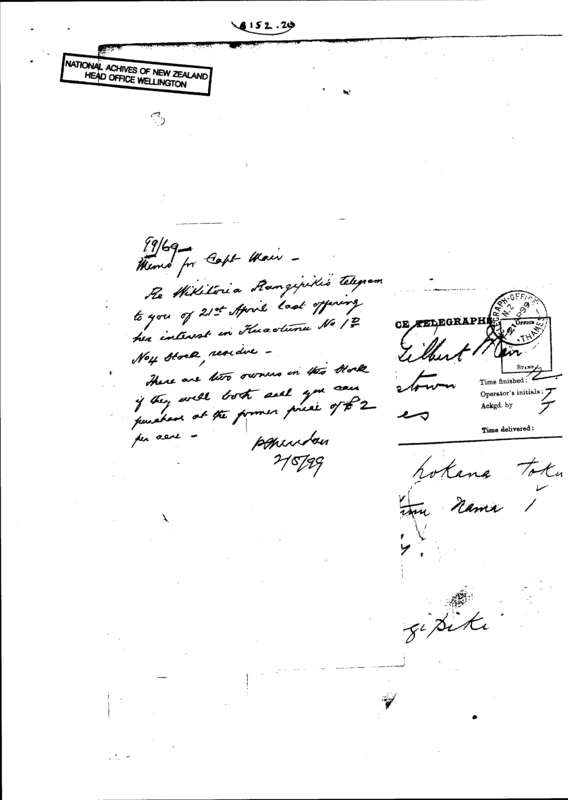 B152.20
NATIONAL ACHIVES OF NEW ZEALAND
HEAD OFFICE WELLINGTON
99/69
Memo for Capt Mair -
Re Wikitoria Rangipiki's telegram
to you of 21st April last offering
her interest in Kuaotunu No 1
No 4 Block, residue -
There are two owners in this Block
if they will both sell you can
purchase at the former price of £2
per acre -
P Sheridan
2/5/99
CE TELEGRAPHS
TELEGRAPH-OFFICE
N.Z
21 AP 99
THAMES
OFFICE
STAMP
Gilbert Mair
stown
es
Time finished: 12
Operator's initials: T
Ackgd. by T
Time delivered:
hokona toku
Nama 1
gipiki